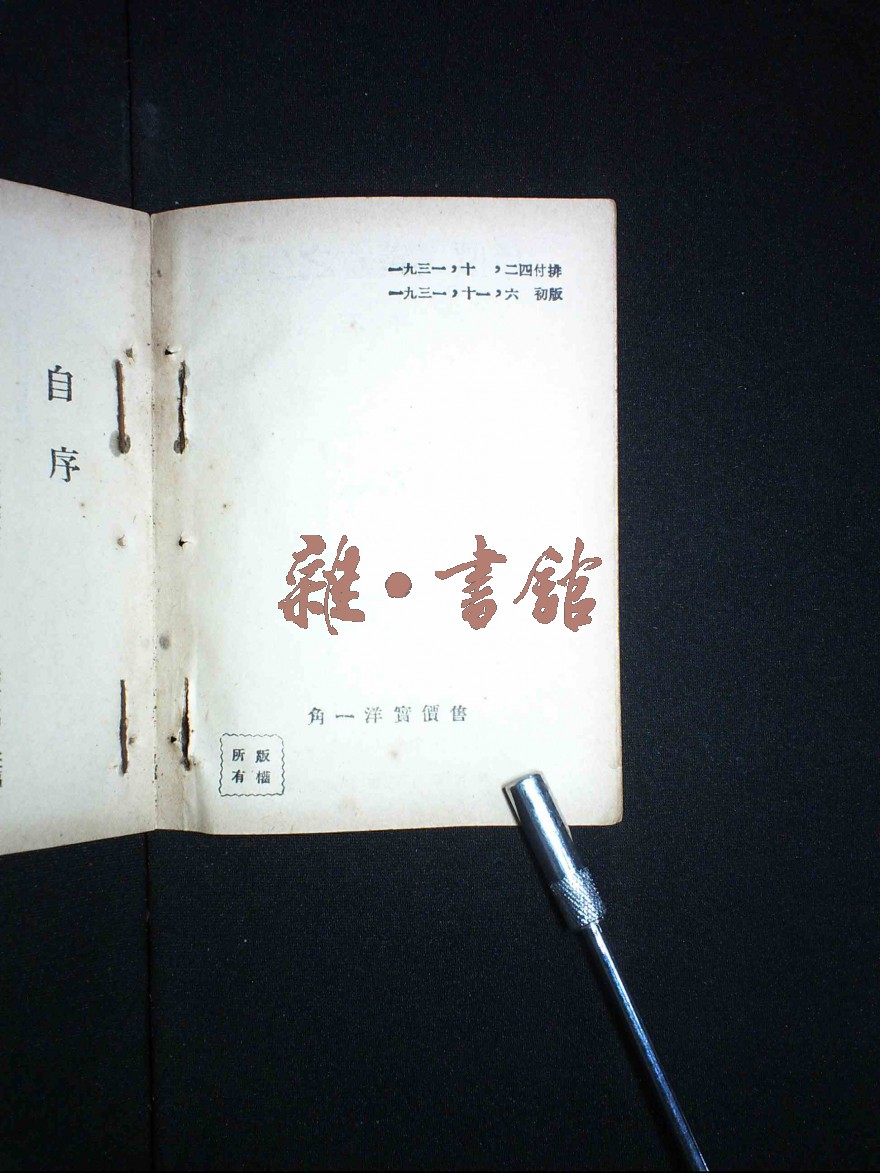 一九三一，十　，二四付排
一九三一，十一，六　初版
自序
雜•書館
角一洋實價售
版權
所有